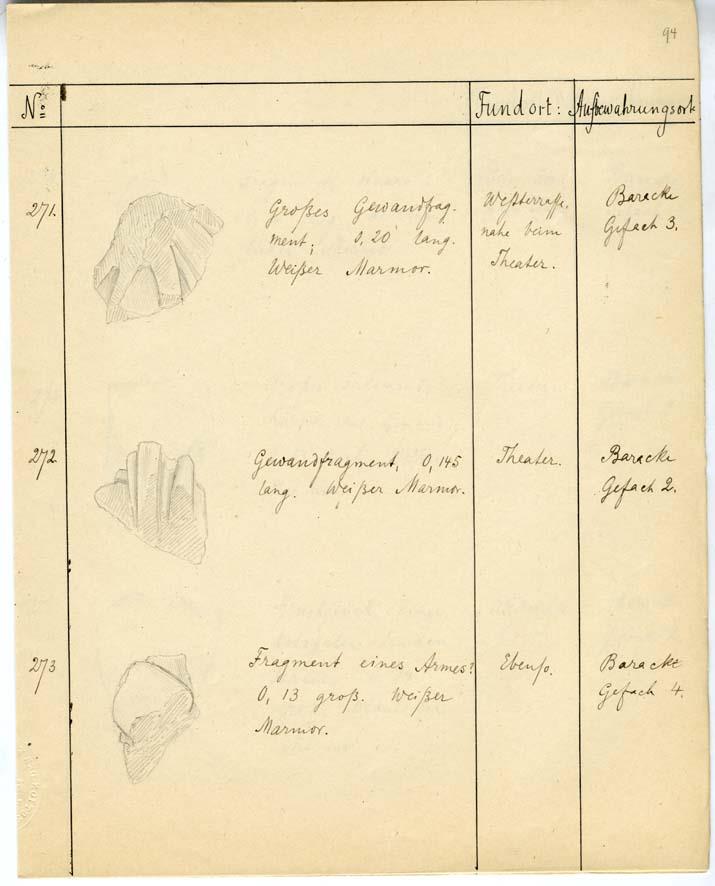 94
No. Fundort: Aufbewahrungsort
271. Großes Gewandfrag- Westterrasse, Baracke
ment; 0,20 lang. nahe beim Gefach 3.
Weißer Marmor. Theater.
272. Gewandfragment, 0,145 Theater. Baracke
lang. Weißer Marmor. Gefach 2.
273 Fragment eines Armes? Ebenso. Baracke
0,13 groß. Weißer Gefach 4.
Marmor.